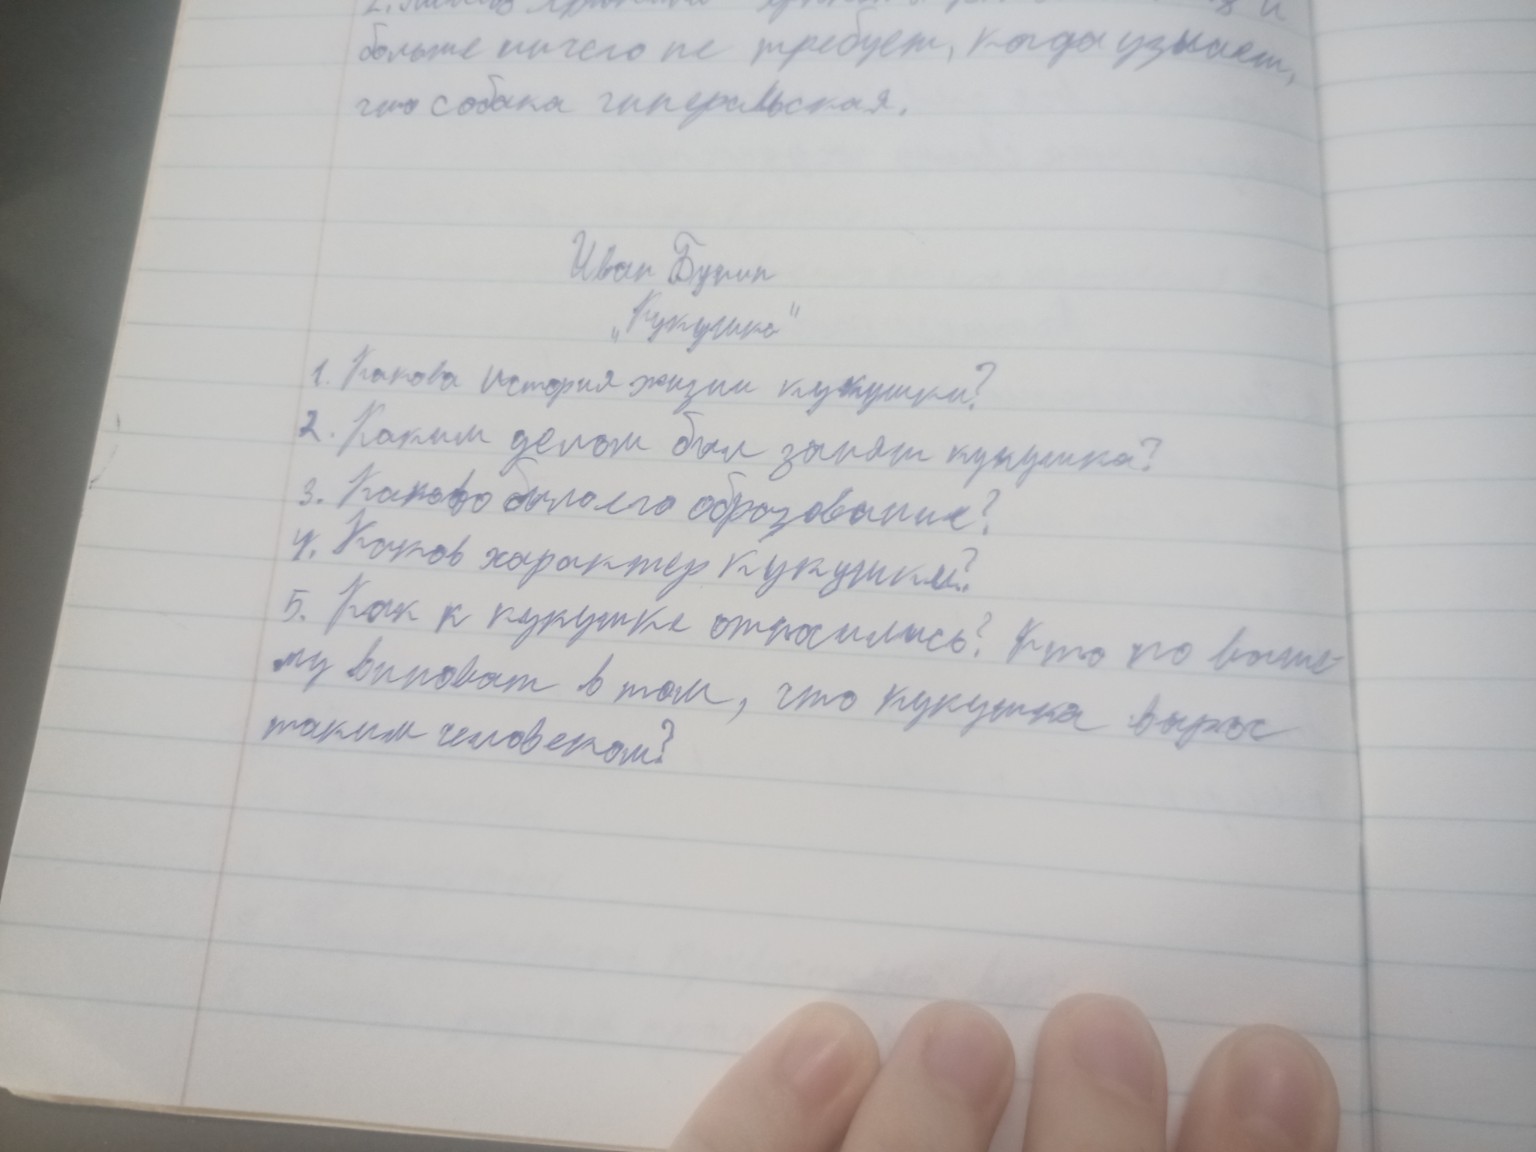 больше ничего не требует, когда узнает,
что собака гинеральская.
Иван Бунин
„Кукушка"
1. Какова история жизни кукушки?
2. Каким делом был занят кукушка?
3. Каково было его образование?
4. Каков характер кукушки?
5. Как к кукушке относились? Кто по ваше-
му виноват в том, что кукушка вырос
таким человеком?